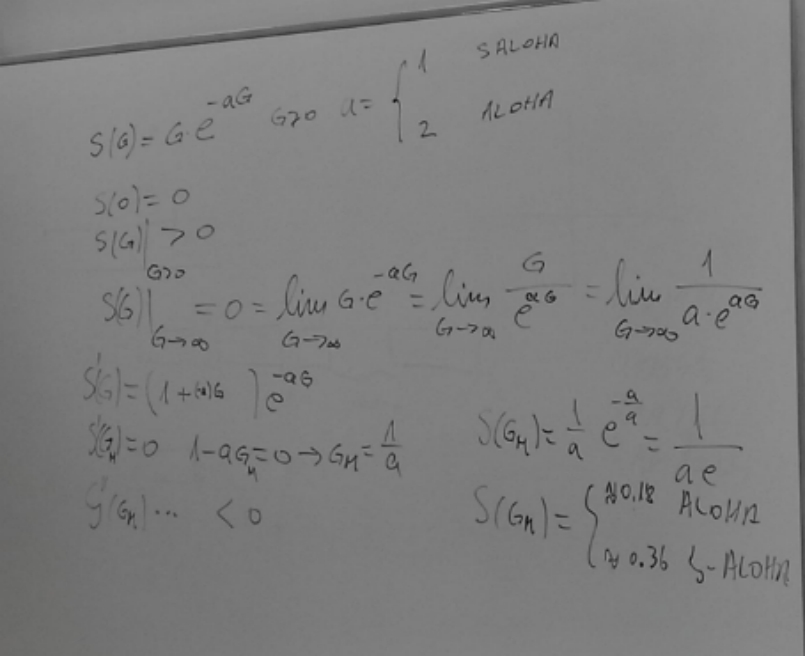 S(G) = G·e^{-aG} G≥0 a = { 1 SALOHA
2 ALOHA
S(0) = 0
S(G)|_{G>0} > 0
S(G)|_{G→∞} = 0 = lim_{G→∞} G·e^{-aG} = lim_{G→∞} G/e^{aG} = lim_{G→∞} 1/(a·e^{aG})
S'(G) = (1 + (-a)G) e^{-aG}
S'(G_M) = 0 1 - aG_M = 0 → G_M = 1/a
S''(G_M) ... < 0
S(G_M) = 1/a e^{-a/a} = 1/(ae)
S(G_M) = { ≈0.18 ALOHA
≈0.36 S-ALOHA